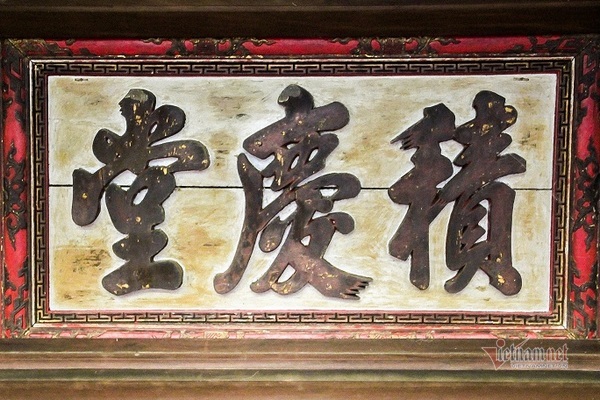 積慶堂
vietnam.net